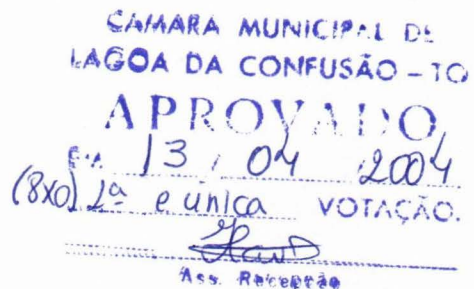 CAMARA MUNICIPAL DE
LAGOA DA CONFUSÃO - TO
APROVADO
EM 13 / 04 2004
(8x0) 1ª e única VOTAÇÃO.
Ass. Recepção